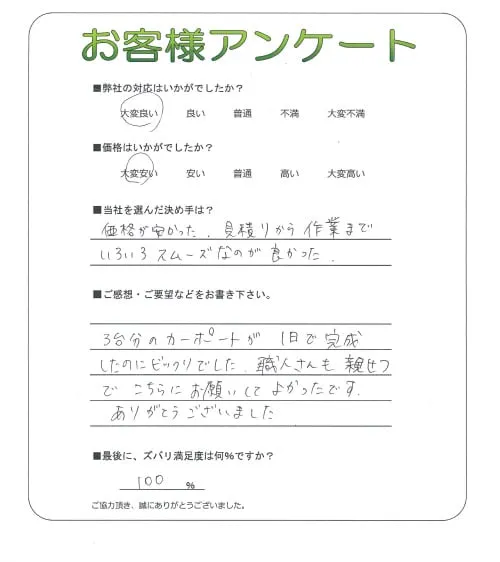 お客様アンケート
■弊社の対応はいかがでしたか？
大変良い 良い 普通 不満 大変不満
■価格はいかがでしたか？
大変安い 安い 普通 高い 大変高い
■当社を選んだ決め手は？
価格が安かった。見積りから作業まで
いろいろスムーズなのが良かった。
■ご感想・ご要望などをお書き下さい。
3台分のカーポートが1日で完成
したのにビックリでした。職人さんも親せつ
でこちらにお願いしてよかったです。
ありがとうございました
■最後に、ズバリ満足度は何％ですか？
100 ％
ご協力頂き、誠にありがとうございました。